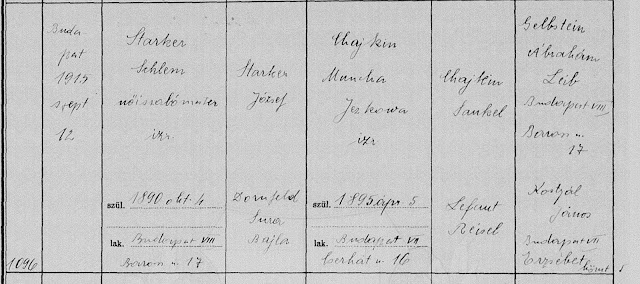 Buda
pest
1915
szept
12
1096
Starker
Schlem
női szabómester
izr
szül. 1890 okt 4
lak. Budapest VIII
Baross u 17
Starker
József
Dornfeld
Sura
Bajla
Chajkin
Muncha
Jezkowa
izr
szül. 1895 apr 5
lak. Budapest VII
Cserhát u 16
Chajkin
Sankel
Lefant
Reisel
Gelbstein
Ábrahám
Leib
Budapest VIII
Baross u
17
Kostyál
János
Budapest VII
Erzsébet körút 5